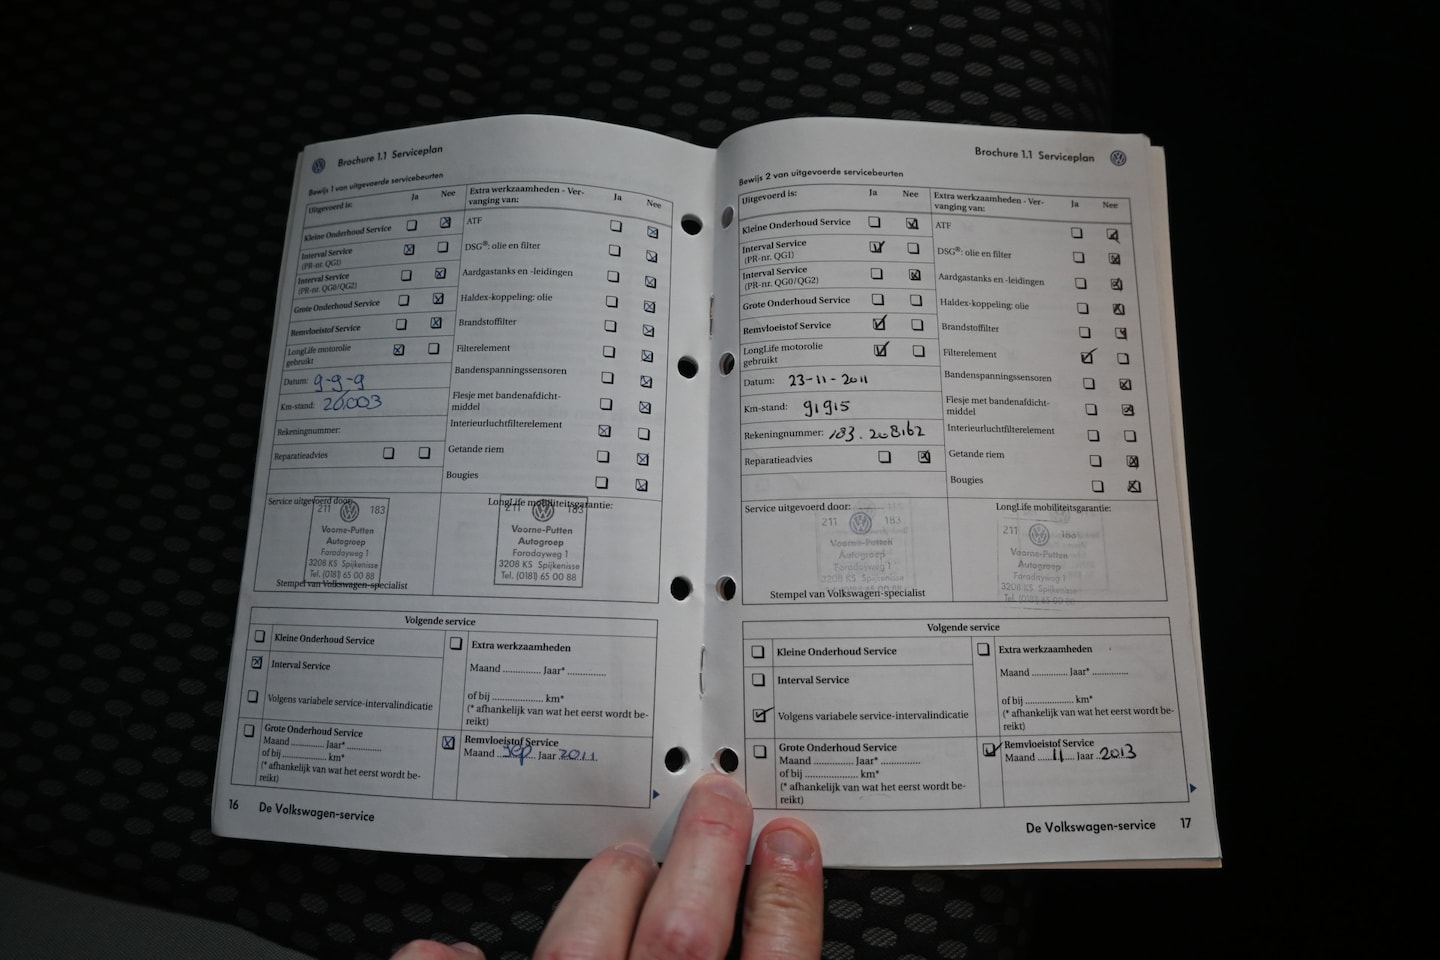 Brochure 1.1 Serviceplan
Bewijs 1 van uitgevoerde servicebeurten
Uitgevoerd is: Ja Nee
Kleine Onderhoud Service
Interval Service
(PR-nr. QG1)
Interval Service
(PR-nr. QG0/QG2)
Grote Onderhoud Service
Remvloeistof Service
LongLife motorolie
gebruikt
Datum: 9-9-9
Km-stand: 20.003
Rekeningnummer:
Reparatieadvies
Extra werkzaamheden - Ver-
vanging van: Ja Nee
ATF
DSG®: olie en filter
Aardgastanks en -leidingen
Haldex-koppeling: olie
Brandstoffilter
Filterelement
Bandenspanningssensoren
Flesje met bandenafdicht-
middel
Interieurluchtfilterelement
Getande riem
Bougies
Service uitgevoerd door:
211 183
Voorne-Putten
Autogroep
Faradayweg 1
3208 KS Spijkenisse
Tel. (0181) 65 00 88
Stempel van Volkswagen-specialist
LongLife mobiliteitsgarantie:
211 183
Voorne-Putten
Autogroep
Faradayweg 1
3208 KS Spijkenisse
Tel. (0181) 65 00 88
Volgende service
Kleine Onderhoud Service
Interval Service
Volgens variabele service-intervalindicatie
Grote Onderhoud Service
Maand ............ Jaar* ..............
of bij ..................... km*
(* afhankelijk van wat het eerst wordt be-
reikt)
Extra werkzaamheden
Maand .............. Jaar* ..............
of bij ..................... km*
(* afhankelijk van wat het eerst wordt be-
reikt)
Remvloeistof Service
Maand Sep Jaar 2011
16 De Volkswagen-service
Brochure 1.1 Serviceplan
Bewijs 2 van uitgevoerde servicebeurten
Uitgevoerd is: Ja Nee
Kleine Onderhoud Service
Interval Service
(PR-nr. QG1)
Interval Service
(PR-nr. QG0/QG2)
Grote Onderhoud Service
Remvloeistof Service
LongLife motorolie
gebruikt
Datum: 23-11-2011
Km-stand: 91915
Rekeningnummer: 183.208162
Reparatieadvies
Extra werkzaamheden - Ver-
vanging van: Ja Nee
ATF
DSG®: olie en filter
Aardgastanks en -leidingen
Haldex-koppeling: olie
Brandstoffilter
Filterelement
Bandenspanningssensoren
Flesje met bandenafdicht-
middel
Interieurluchtfilterelement
Getande riem
Bougies
Service uitgevoerd door:
211 183
Voorne-Putten
Autogroep
Faradayweg 1
3208 KS Spijkenisse
Stempel van Volkswagen-specialist
LongLife mobiliteitsgarantie:
211 183
Voorne-Putten
Autogroep
Faradayweg 1
3208 KS Spijkenisse
Volgende service
Kleine Onderhoud Service
Interval Service
Volgens variabele service-intervalindicatie
Grote Onderhoud Service
Maand ............ Jaar* ..............
of bij ..................... km*
(* afhankelijk van wat het eerst wordt be-
reikt)
Extra werkzaamheden
Maand .............. Jaar* ..............
of bij ..................... km*
(* afhankelijk van wat het eerst wordt be-
reikt)
Remvloeistof Service
Maand 11 Jaar 2013
De Volkswagen-service 17